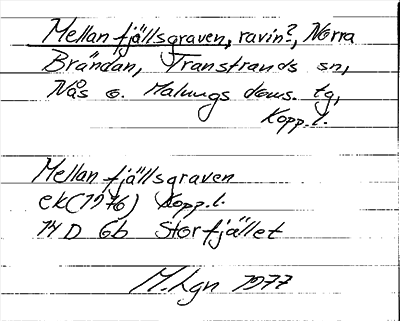 Mellanfjällsgraven, ravin?, Norra
Brändan, Transtrands sn,
Nås o. Malungs doms. tg,
Kopp.l.
Mellanfjällsgraven
ek(1976) Kopp.l.
14D 6b Storfjället
M.Lgn 1977